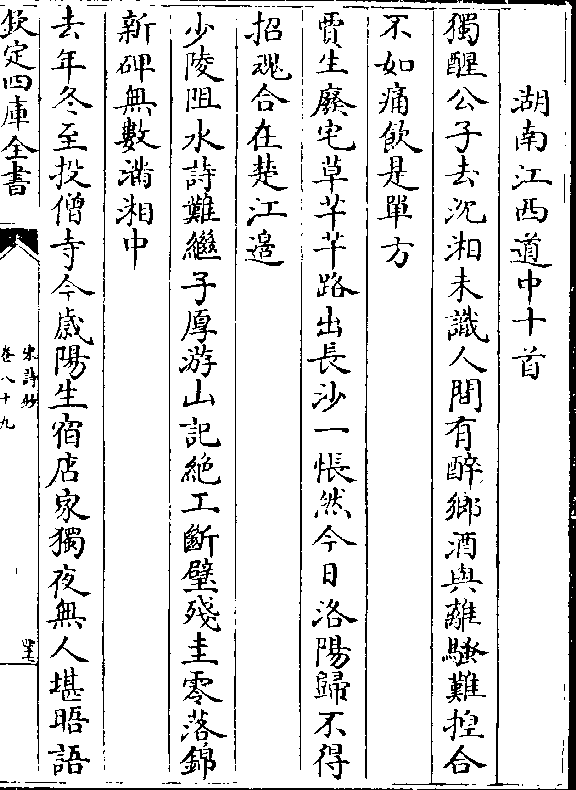 湖南江西道中十首
獨醒公子去沉湘未識人間有醉鄉酒與離騷難捏合
不如痛飲是單方
賈生廢宅草芊芊路出長沙一悵然今日洛陽歸不得
招魂合在楚江邉
少陵阻水詩難繼子厚游山記絶工斷壁殘圭零落錦
新碑無數滿湘中
去年冬至投僧寺今歲陽生宿店家獨夜無人堪晤語
欽定四庫全書
宋詩鈔
卷八十九